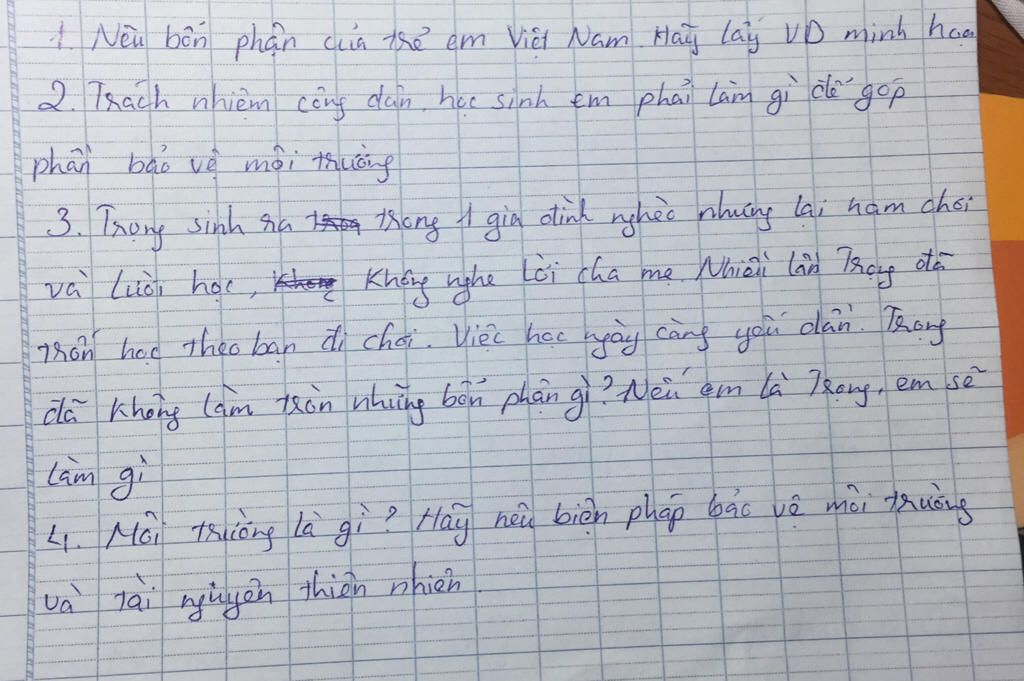 1. Nêu bổn phận của trẻ em Việt Nam. Hãy lấy VD minh họa
2. Trách nhiệm công dân, học sinh em phải làm gì để góp
phần bảo vệ môi trường
3. Trọng sinh ra trong 1 gia đình nghèo nhưng lại ham chơi
và lười học, Không nghe lời cha mẹ. Nhiều lần Trọng đã
trốn học theo bạn đi chơi. Việc học ngày càng yếu dần. Trọng
đã không làm tròn những bổn phận gì? Nếu em là Trọng, em sẽ
làm gì
4. Môi trường là gì? Hãy nêu biện pháp bảo vệ môi trường
và tài nguyên thiên nhiên.